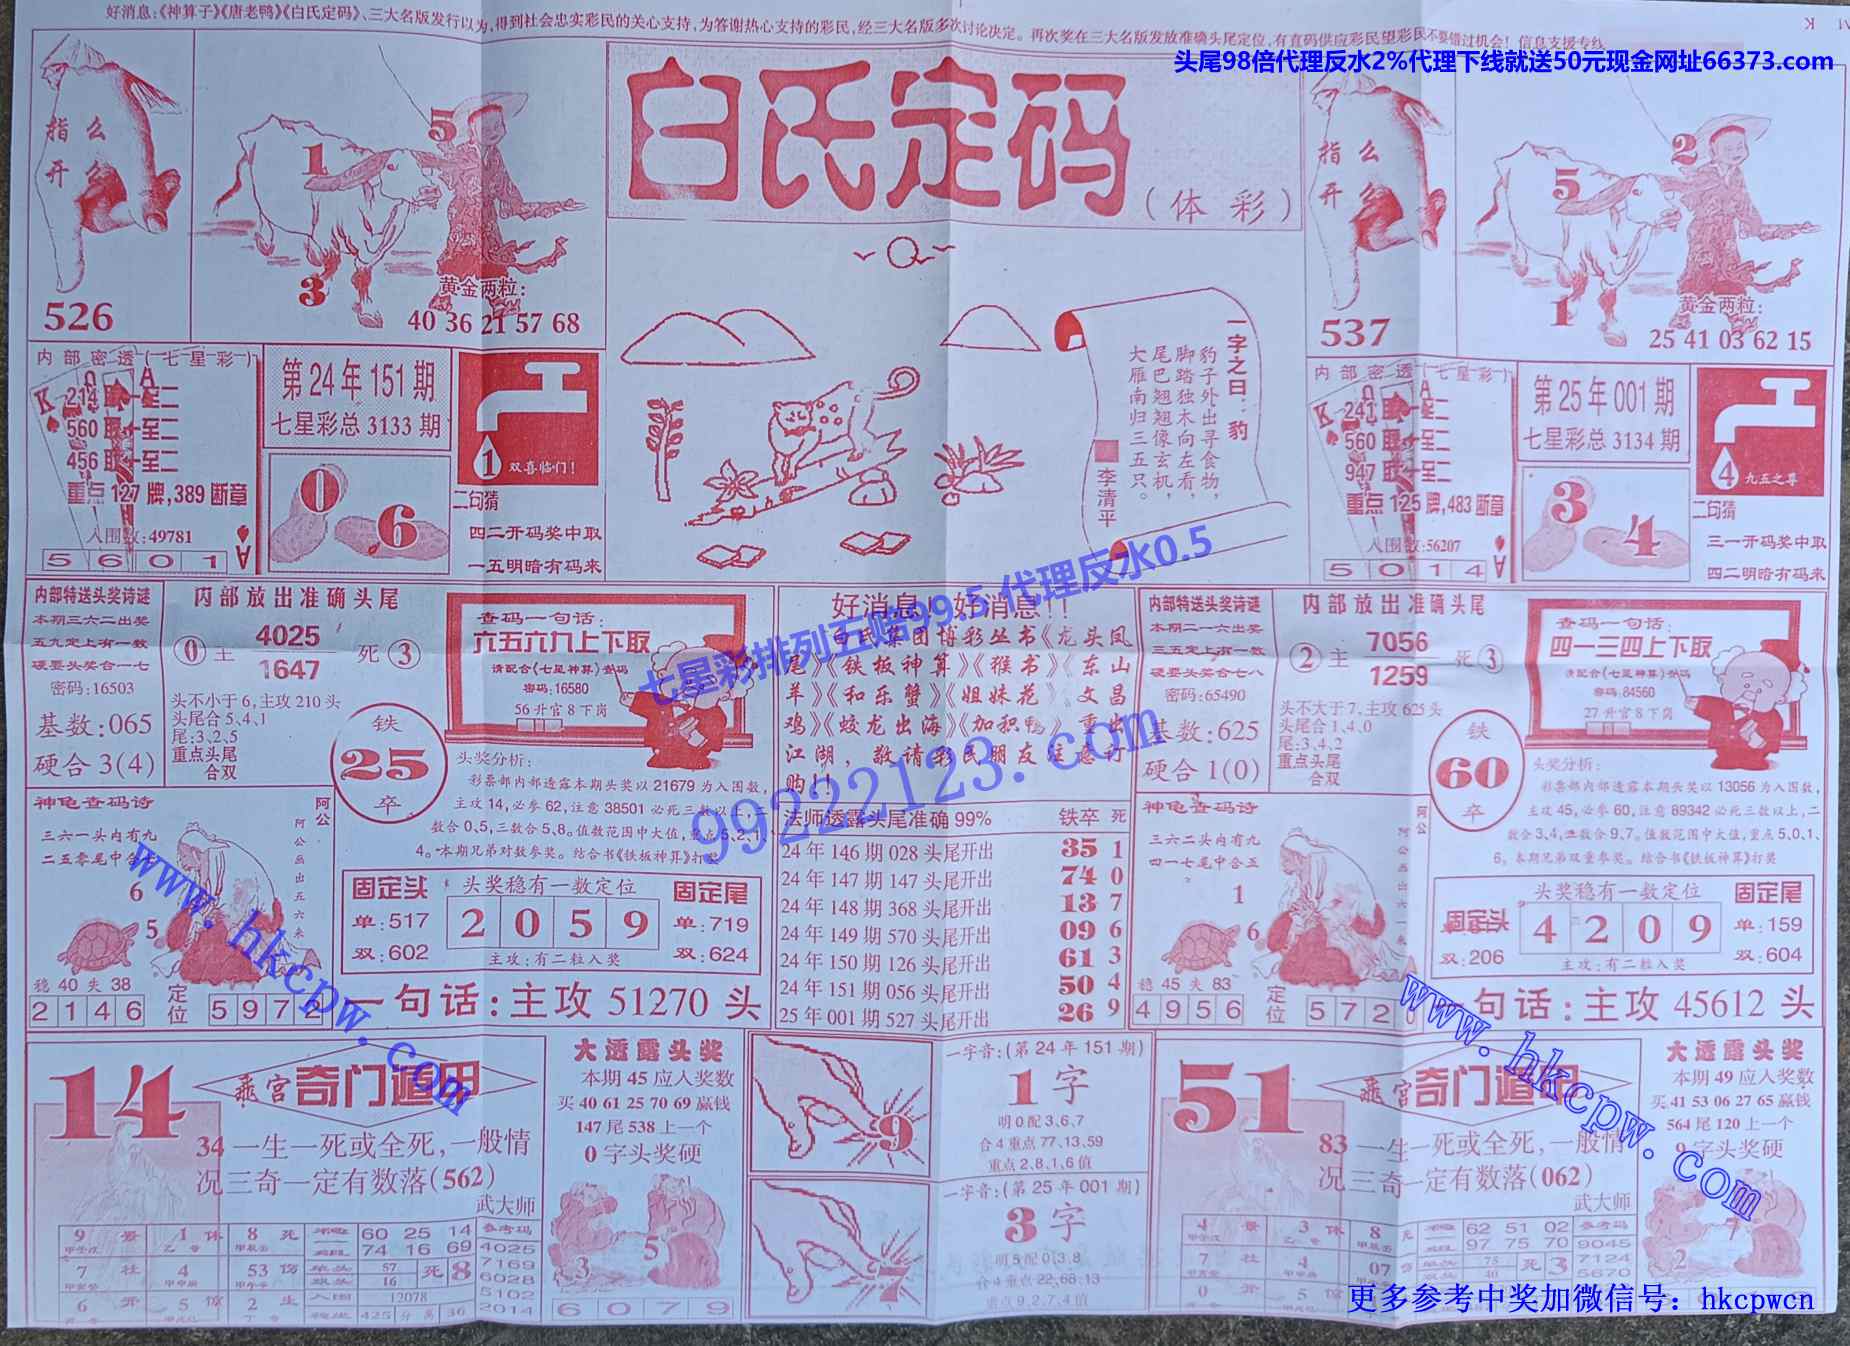 好消息:《神算子》《唐老鸭》《白氏定码》、三大名版发行以为,得到社会忠实彩民的关心支持,为答谢热心支持的彩民,经三大名版多次讨论决定。再次奖在三大名版发放准确头尾定位,有直码供应彩民望彩民不要错过机会!信息支援专线
头尾98倍代理反水2%代理下线就送50元现金网址66373.com
白氏定码
(体彩)
指么
开么
526
5
1
3
黄金两粒:
40 36 21 57 68
内部密透(七星彩)
K Q A
214
560
456
重点 127 牌,389 断章
入围数:49781
5 6 0 1
A
第24年151期
七星彩总 3133 期
0
6
1
双喜临门!
二句猜
四二开码奖中取
一五明暗有码来
一字之曰:豹
豹子外出寻食物,
脚踏独木向左看,
尾巴翘翘像玄机,
大雁南归三五只。
李清平
指么
开么
537
2
5
1
黄金两粒:
25 41 03 62 15
内部密透(七星彩)
K Q A
241
560
947
重点 125 牌,483 断章
入围数:56207
5 0 1 4
A
第25年001期
七星彩总 3134 期
3
4
4
九五之尊
二句猜
三一开码奖中取
四二明暗有码来
内部特送头奖诗谜
本期三六二出奖
五九定上有一数
硬要头奖合一七
密码:16503
基数:065
硬合 3(4)
内部放出准确头尾
0 主 4025 死 3
1647
头不小于6,主攻210头
头尾合5、4、1
尾:3、2、5
重点头尾
合双
铁
25
卒
查码一句话:
六五六九上下取
请配合(七星神算)查码
密码:16580
56 升官 8 下岗
头奖分析:
彩票部内部透露本期头奖以 21679 为入围数,
主攻 14,必参 62,注意 38501 必死三数以上,二
数合 0、5,三数合 5、8。值数范围中大值,重点 5、2、1、
4。本期兄弟对数参奖。结合书《铁板神算》打奖
神龟查码诗
三六一头内有九
二五零尾中合七
6
5
阿公
阿公画出五六来
稳 40 失 38
2 1 4 6
定位
5 9 7 2
固定头
单:517
双:602
头奖稳有一数定位
2 0 5 9
主攻:有二粒入奖
固定尾
单:719
双:624
一句话:主攻 51270 头
好消息 好消息!!
白氏集团博彩丛书《龙头凤
尾》《铁板神算》《猴书》《东山
羊》《和乐蟹》《姐妹花》《文昌
鸡》《蛟龙出海》《加积鸭》重出
江湖,敬请彩民朋友注意订
购!!
法师透露头尾准确 99% 铁卒 死
24 年 146 期 028 头尾开出 35 1
24 年 147 期 147 头尾开出 74 0
24 年 148 期 368 头尾开出 13 7
24 年 149 期 570 头尾开出 09 6
24 年 150 期 126 头尾开出 61 3
24 年 151 期 056 头尾开出 50 4
25 年 001 期 527 头尾开出 26 9
内部特送头奖诗谜
本期二一六出奖
三五定上有一数
硬要头奖合七八
密码:65490
基数:625
硬合 1(0)
内部放出准确头尾
2 主 7056 死 3
1259
头不大于7,主攻625头
头尾合1、4、0
尾:3、4、2
重点头尾
合双
铁
60
卒
查码一句话:
四一三四上下取
请配合(七星神算)查码
密码:84560
27 升官 8 下岗
头奖分析:
彩票部内部透露本期头奖以 13056 为入围数,
主攻 45,必参 60,注意 89342 必死三数以上,二
数合 3、4,三数合 9、7。值数范围中大值,重点 5、0、1、
6。本期兄弟双重参奖。结合书《铁板神算》打奖
神龟查码诗
三六二头内有九
四一七尾中合五
1
6
阿公
稳 45 失 83
4 9 5 6
定位
5 7 2 0
固定头
单
双:206
头奖稳有一数定位
4 2 0 9
主攻:有二粒入奖
固定尾
单:159
双:604
一句话:主攻 45612 头
七星彩排列五赔99.5 代理反水0.5
99222123.com
www.hkcpw.com
www.hkcpw.com
14
乘宫奇门遁甲
34 一生一死或全死,一般情
况三奇一定有数落(562)
武大师
9 景 1 休 8 死
7 杜 4 53 伤
6 开 5 惊 2 生
60 25 14
74 16 69
57
16
死 8
入围 12078
425 分离 36
参考码
4025
7169
6028
5102
2014
大透露头奖
本期 45 应入奖数
买 40 61 25 70 69 赢钱
147 尾 538 上一个
0 字头奖硬
3
5
6 0 7 9
9
7
一字音:(第 24 年 151 期)
1字
明0配3、6、7
合4重点77、13、59
重点2、8、1、6值
一字音:(第 25 年 001 期)
3字
明5配0、3、8
合4重点22、68、13
重点9、2、7、4值
51
乘宫奇门遁甲
83 一生一死或全死,一般情
况三奇一定有数落(062)
武大师
4 景 3 休 8 死
7 杜 4 07 伤
0 开 5 惊
62 51 02
97 75 70
75
死 3
参考码
9045
7124
5670
大透露头奖
本期 49 应入奖数
买 41 53 06 27 65 赢钱
564 尾 120 上一个
9 字头奖硬
7
2
更多参考中奖加微信号: hkcpwcn